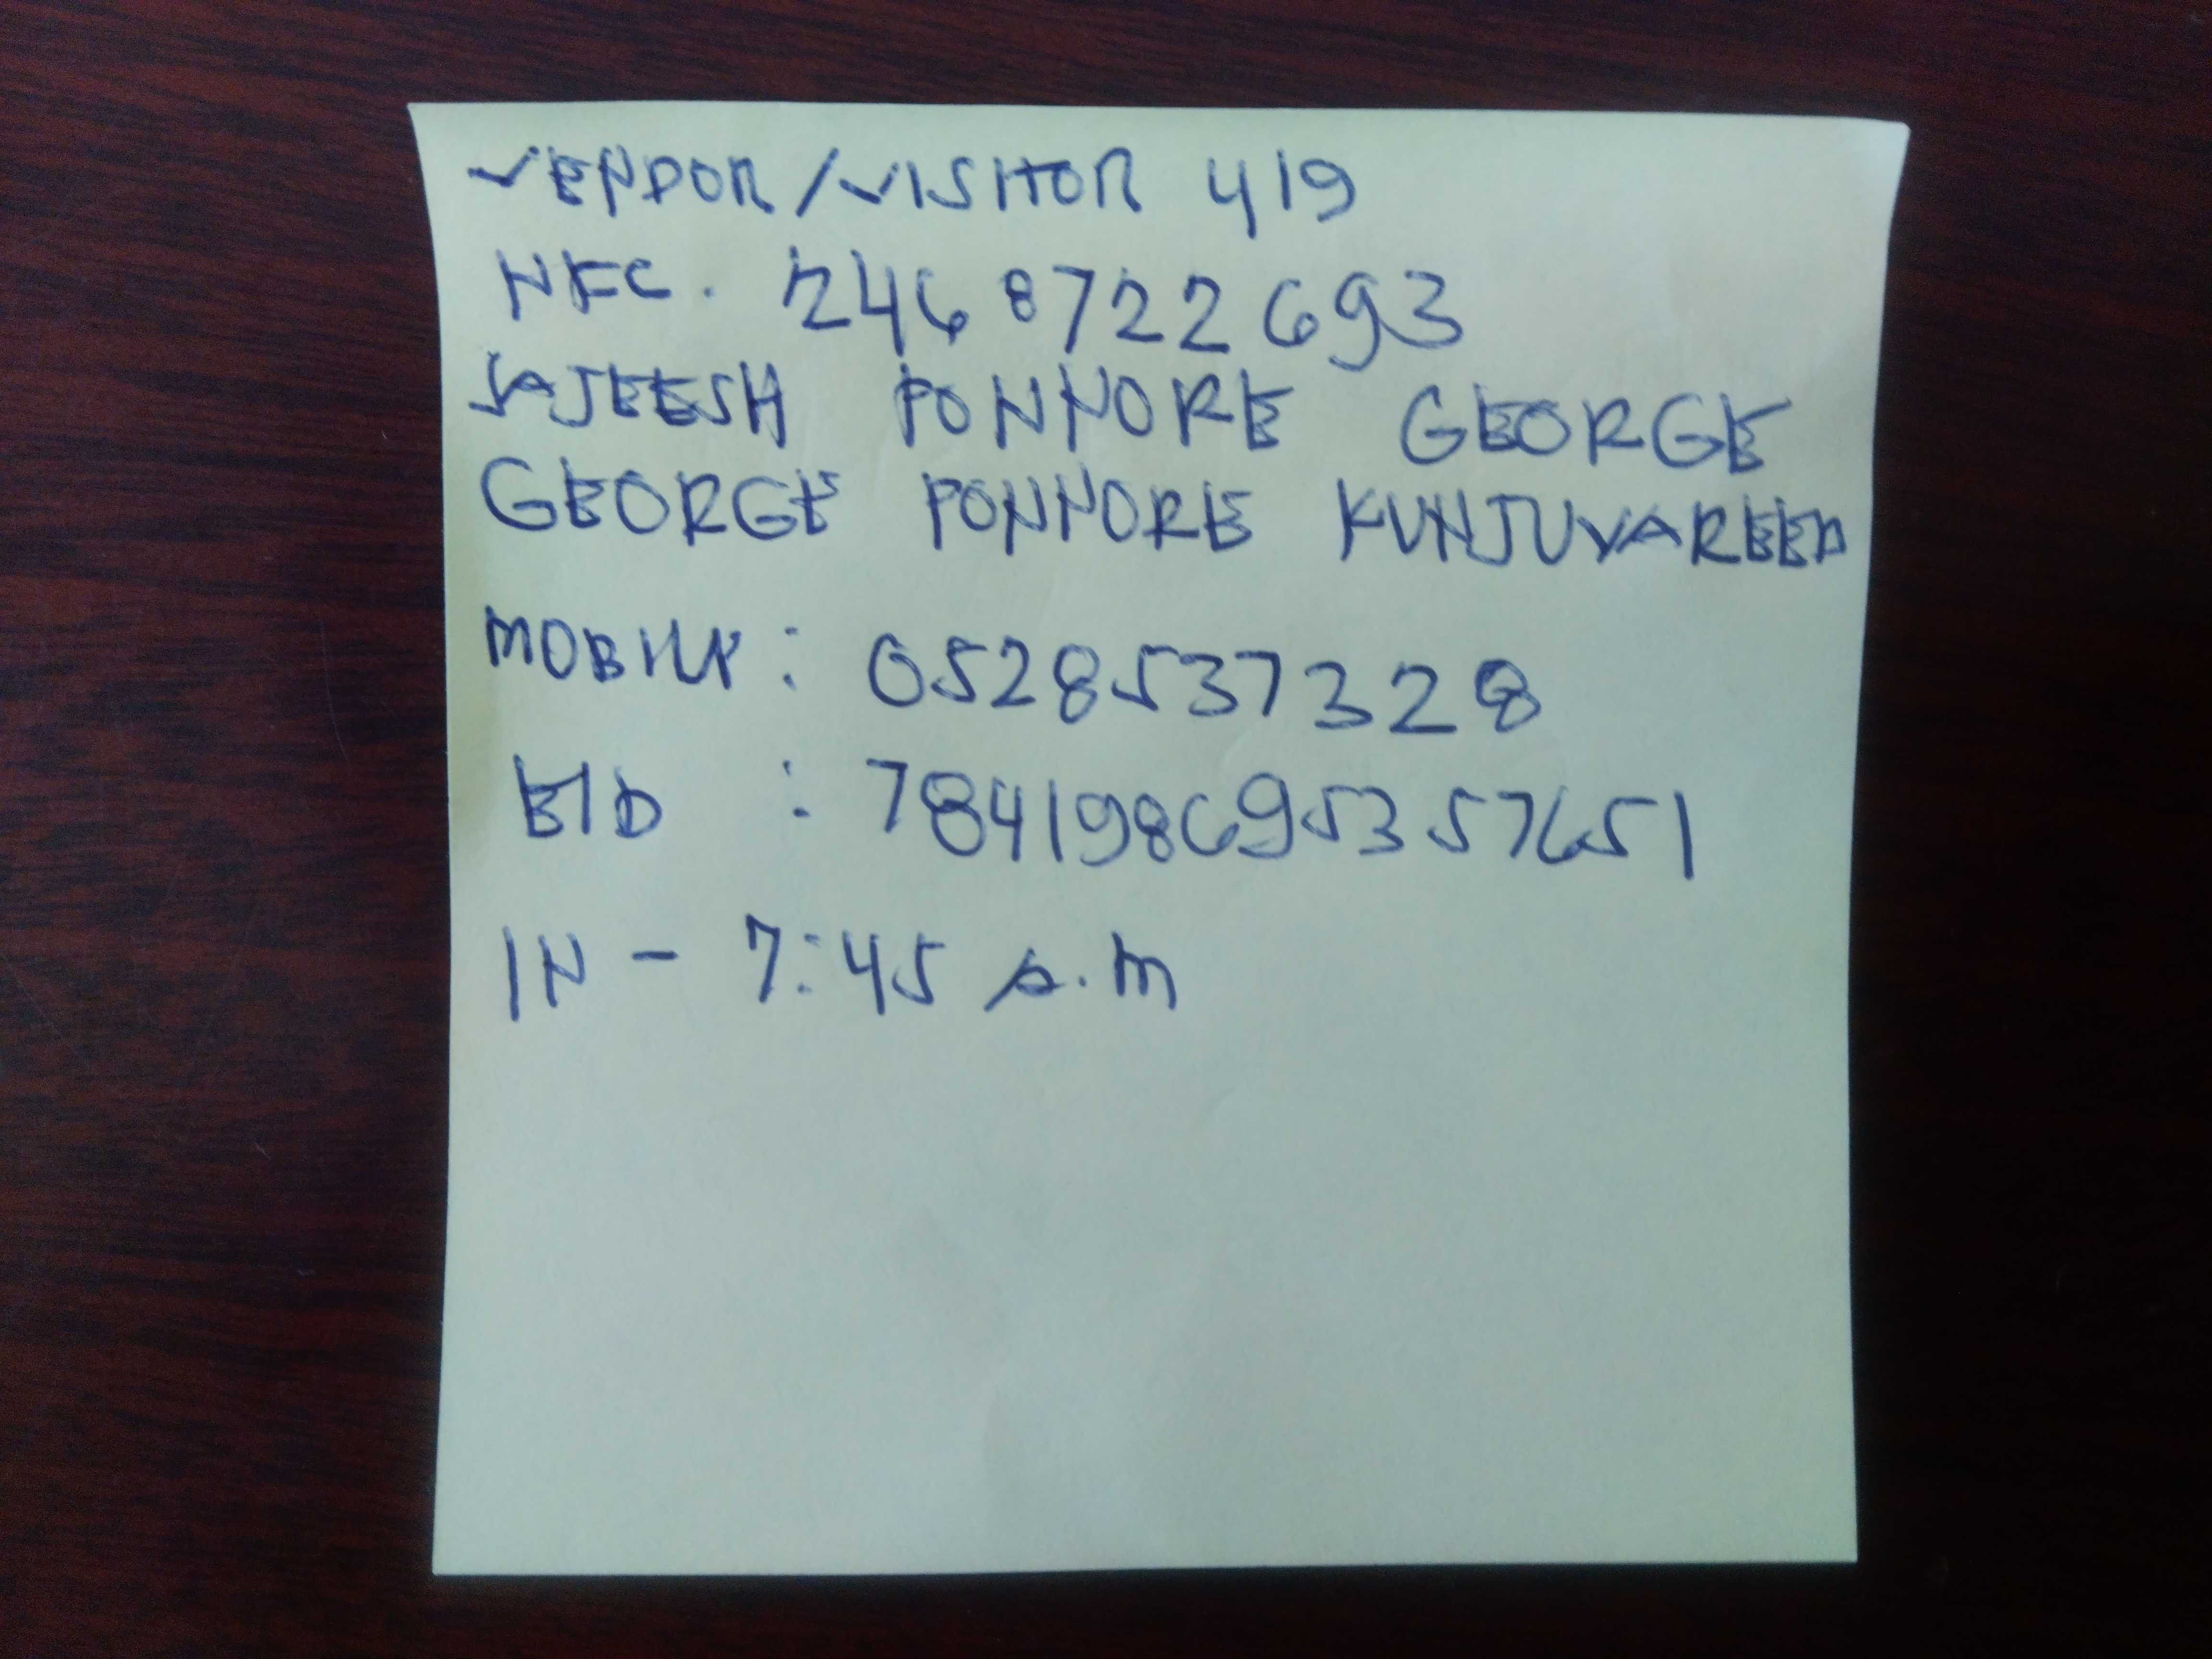 VENDOR/VISITOR 419
NFC. 2468722693
SAJEESH PONNORE GEORGE
GEORGE PONNORE KUNJUVAREED
MOBILE : 0528537328
EID : 784198695357651
IN - 7:45 a.m